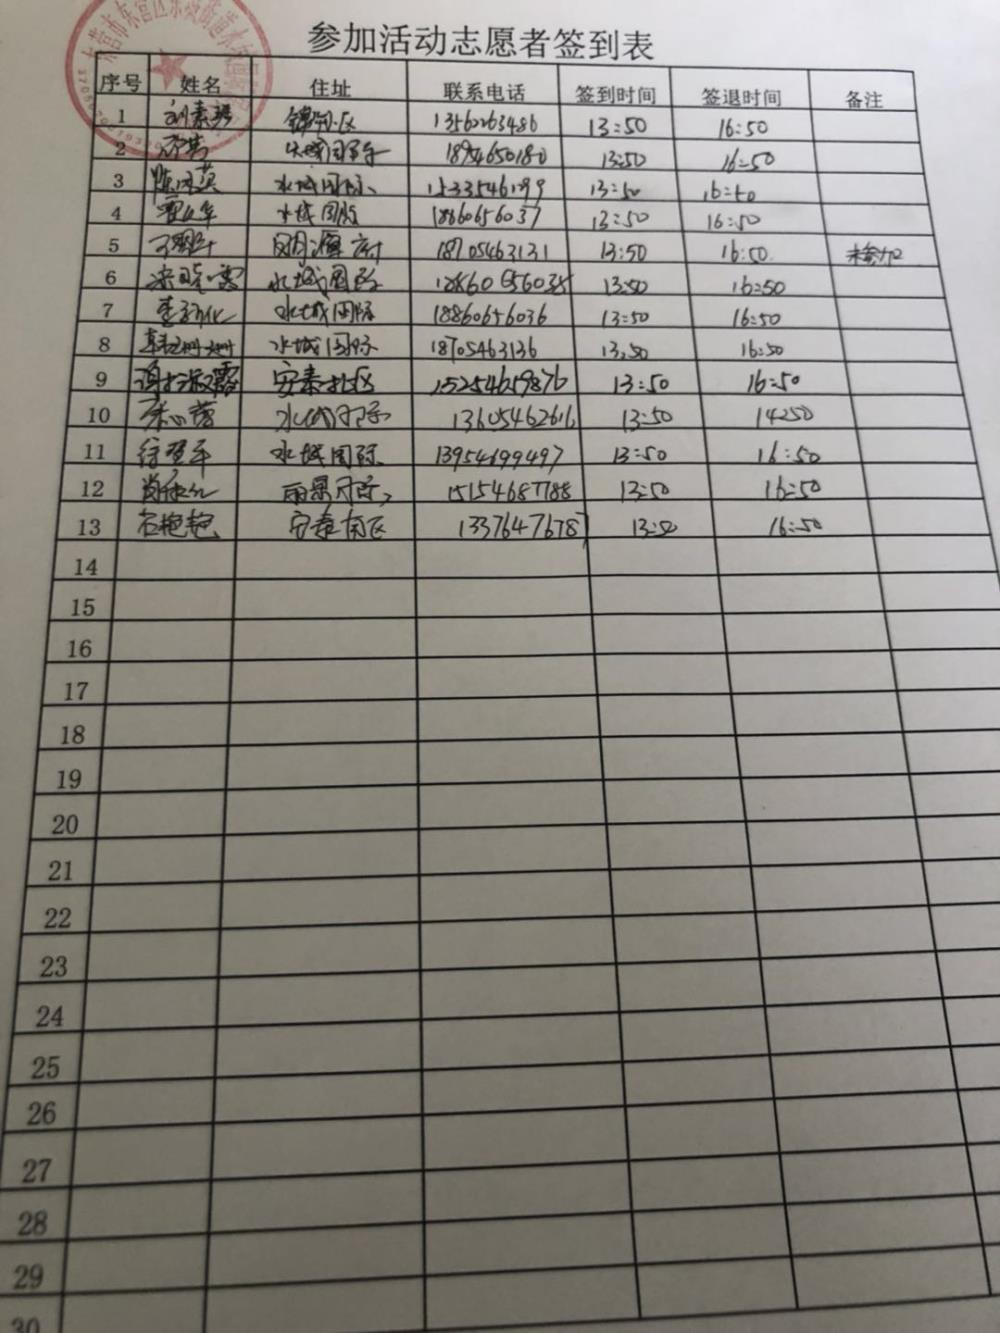 参加活动志愿者签到表
序号 姓名 住址 联系电话 签到时间 签退时间 备注
1 刘素琴 锦华小区 13560263486 13:50 16:50
2 水城国际 18954650180 13:50 16:50
3 水城国际 15335461199 13:50 16:50
4 水城国际 18860656037 13:50 16:50
5 府 18705463131 13:50 16:50 未参加
6 水城国际 13:50 16:50
7 水城国际 18860656036 13:50 16:50
8 韩珊珊 水城国际 18705463136 13:50 16:50
9 安泰社区 15254659876 13:50 16:50
10 水城国际 13605462616 13:50
11 水城国际 13954699497 13:50 16:50
12 15154687188 13:50 16:50
13 石艳艳 安泰南区 13376476787 13:50 16:50
14
15
16
17
18
19
20
21
22
23
24
25
26
27
28
29
30